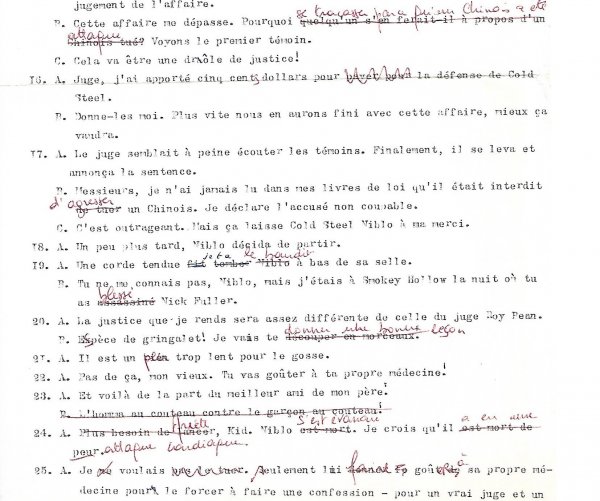 jugement de l'affaire.
se tracasser parce qu'un Chinois a été
B. Cette affaire me dépasse. Pourquoi quelqu'un s'en ferait-il à propos d'un
attaqué
Chinois tué? Voyons le premier témoin.
C. Cela va être une drôle de justice!
16. A. Juge, j'ai apporté cinq cents dollars pour payer pour la défense de Cold
Steel.
B. Donne-les moi. Plus vite nous en aurons fini avec cette affaire, mieux ça
vaudra.
17. A. Le juge semblait à peine écouter les témoins. Finalement, il se leva et
annonça la sentence.
B. Messieurs, je n'ai jamais lu dans mes livres de loi qu'il était interdit
d'agresser
de tuer un Chinois. Je déclare l'accusé non coupable.
C. C'est outrageant. Mais ça laisse Cold Steel Niblo à ma merci.
18. A. Un peu plus tard, Niblo décida de partir.
jeta le bandit
19. A. Une corde tendue fit tomber Niblo à bas de sa selle.
B. Tu ne me connais pas, Niblo, mais j'étais à Smokey Hollow la nuit où tu
blessé
as assassiné Nick Fuller.
20. A. La justice que je rends sera assez différente de celle du juge Roy Bean.
donner une bonne leçon
B. Espèce de gringalet! Je vais te découper en morceaux.
21. A. Il est un trop lent pour le gosse.
22. A. Pas de ça, mon vieux. Tu vas goûter à ta propre médecine!
23. A. Et voilà de la part du meilleur ami de mon père!
B. L'homme au couteau contre le garçon au couteau!
s'est évanoui a eu une
24. A. Plus besoin de lancer, Kid. Niblo est mort. Je crois qu'il est mort de
peur. attaque cardiaque.
25. A. Je voulais seulement lui goûter à sa propre mé-
decine pour le forcer à faire une confession - pour un vrai juge et un